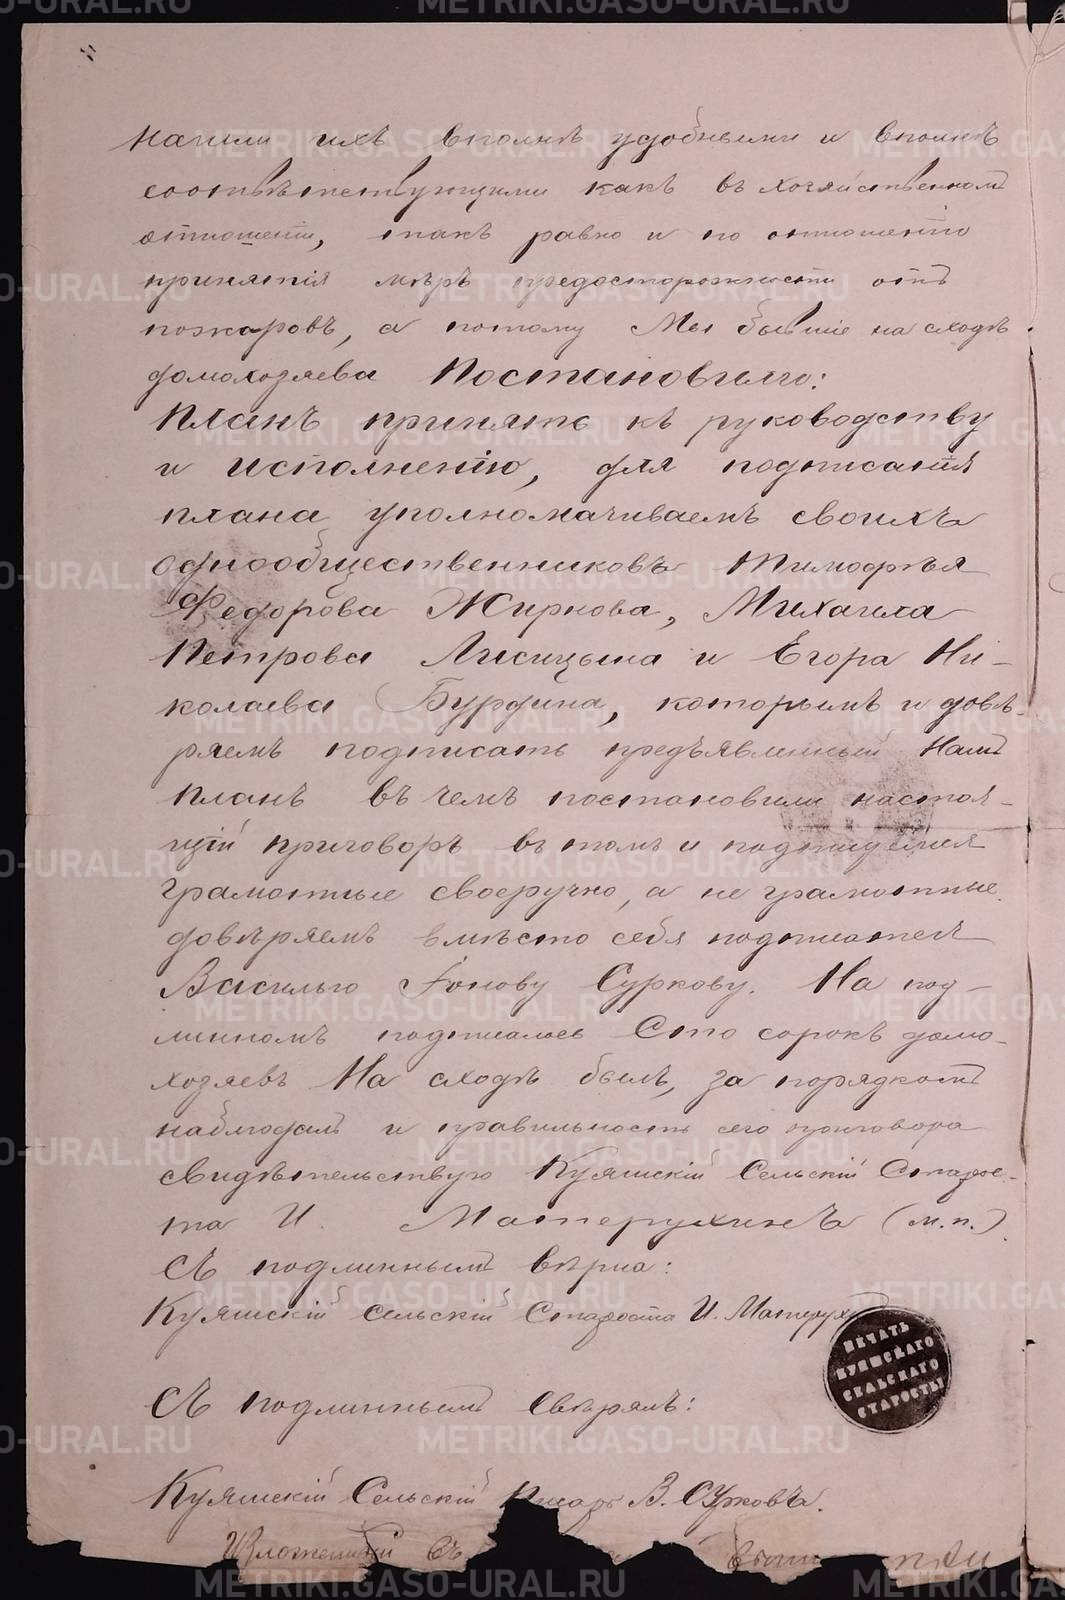 нашли ихъ вполнѣ удобными и вполнѣ
соотвѣтствующими какъ въ хозяйственномъ
отношеніи, такъ равно и по отношенію
принятія мѣръ предосторожности отъ
пожаровъ, а потому Мы бывшіе на сходѣ
домохозяева Постановили:
Планъ принять къ руководству
и исполненію, для подписанія
плана уполномачиваемъ своихъ
однообщественниковъ Тимофѣя
Федорова Жирнова, Михаила
Петрова Лисицына и Егора Ни-
колаева Бурдина, которымъ и довѣ-
ряемъ подписать предъявленный намъ
планъ въ чемъ постановили настоя-
щій приговоръ въ томъ и подпишемся
грамотные своеручно, а не грамотные
довѣряемъ вмѣсто себя подписаться
Василью Іонову Суркову. На под-
линномъ подписалось Сто сорокъ домо-
хозяевъ На сходѣ былъ, за порядкомъ
наблюдалъ и правильность сего приговора
свидѣтельствую Куяшскій Сельскій Старос-
та И. Матерухинъ (м.п.)
Съ подлиннымъ вѣрна:
Куяшскій Сельскій Староста И. Матерухинъ
ПЕЧАТЬ
КУЯШСКАГО
СЕЛЬСКАГО
СТАРОСТЫ
Съ подлиннымъ свѣрялъ:
Куяшскій Сельскій Писарь В. Сурковъ.
Изложенный съ
METRIKI.GASO-URAL.RU